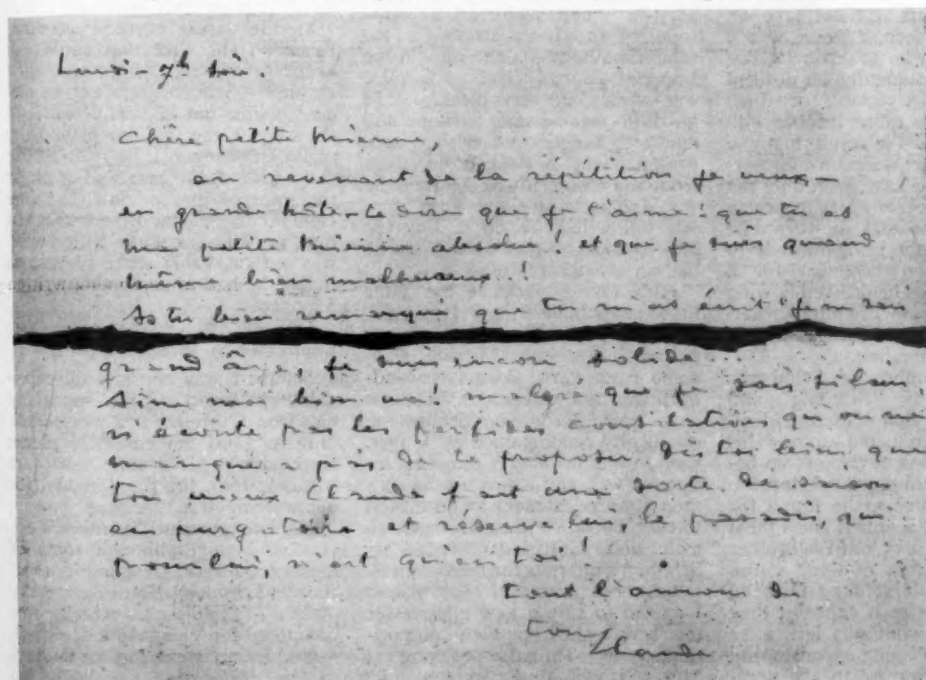 Lundi – 7h soir.
Chère petite Mienne,
en revenant de la répétition je veux –
en grande hâte – te dire que je t'aime! que tu es
ma petite Mienne absolue! et que je suis quand
même bien malheureux!
As tu bien remarqué que tu m'as écrit "je ne sais
grand âge, je suis encore solide...
Aime moi bien va! malgré que je sois si loin,
n'écoute pas les perfides consolations qu'on ne
manquera pas de te proposer. Dis toi bien que
ton vieux Claude fait une sorte de saison
en purgatoire et réserve lui, le paradis, qui
pour lui, n'est qu'en toi!
tout l'amour de
ton
Claude